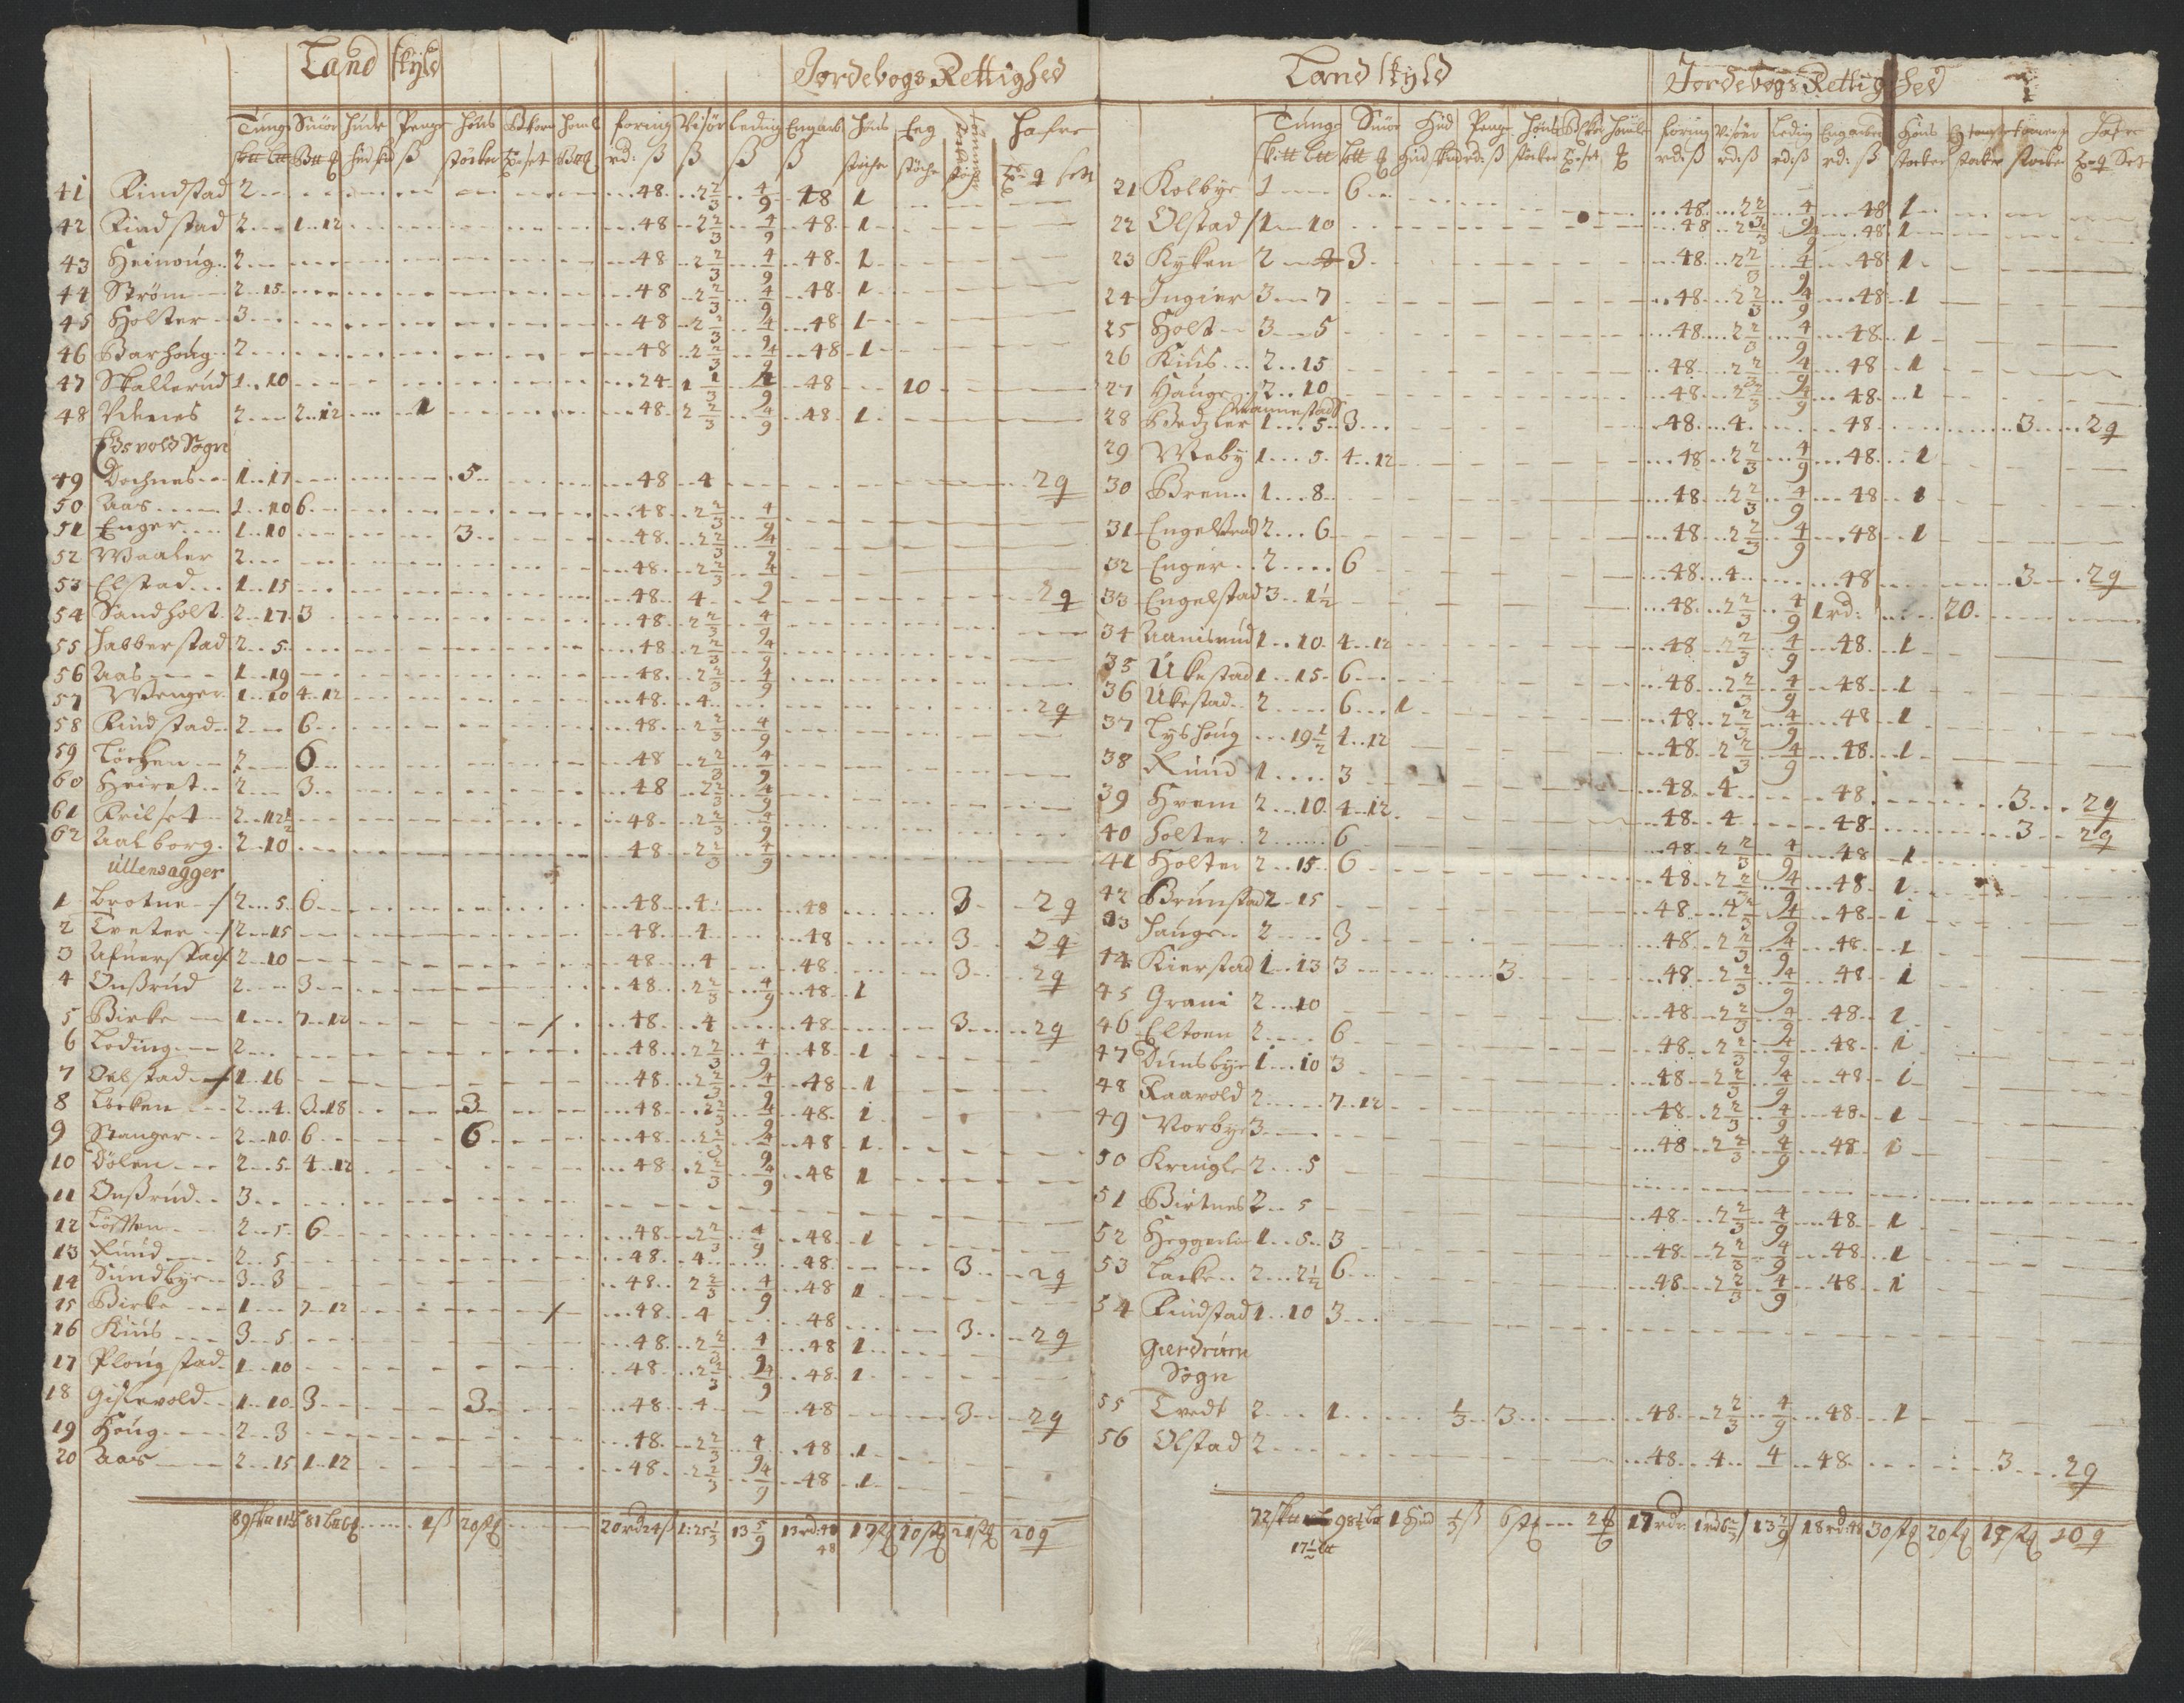 Land skyld
Jordebogs Rettighed
Tunge Smör Hude Penge Höns Bkorn Homle foring Visör leding Engarb Höns Eg Tömmer Hafre
41 Rindstad 2 48 2 2/3 4/9 48 1
42 Rindstad 2 1 12 48 2 2/3 4/9 48 1
43 Heinoug 2 48 2 2/3 4/9 48 1
44 Ström 2 15 48 2 2/3 4/9 48 1
45 Holter 3 48 2 2/3 4/9 48 1
46 Barhoug 2 48 2 2/3 4/9 48 1
47 Skallerud 1 10 24 1 1/3 48 10
48 Vdenes 2 2 12 1 48 2 2/3 4/9 48 1
Edsvold Sogn
49 Dochnes 1 17 5 48 4 2 q
50 Aas 1 10 6 48 2 2/3 4/9
51 Enger 1 10 3 48 2 2/3 4/9
52 Waaler 2 48 2 2/3 4/9
53 Elstad 1 15 48 4 2 q
54 Sandholt 2 17 3 48 2 2/3 4/9
55 Habberstad 2 5 48 2 2/3 4/9
56 Aas 1 19 48 2 2/3 4/9
57 Wenger 1 10 4 12 48 4 2 q
58 Rindstad 2 6 48 2 2/3 4/9
59 Löchen 2 6 48 2 2/3 4/9
60 Heiret 2 3 48 2 2/3 4/9
61 Rilset 2 12 1/2 48 2 2/3 4/9
62 Aalborg 2 10 48 2 2/3 4/9
Ullensagger
1 Brotne 2 5 6 48 4 48 3 2 q
2 Treter 2 15 48 4 48 3 2 q
3 Afuerstad 2 10 48 4 48 3 2 q
4 Onßrud 2 3 48 2 2/3 4/9 48 1
5 Birke 1 7 12 48 4 48 3 2 q
6 Loding 2 48 2 2/3 4/9 48 1
7 Oelstad 1 16 48 2 2/3 4/9 48 1
8 Löcken 2 4 3 18 3 48 2 2/3 4/9 48 1
9 Stanger 2 10 6 6 48 2 2/3 4/9 48 1
10 Dölen 2 5 4 12 48 2 2/3 4/9 48 1
11 Onßrud 3
12 Löften 2 5 6 48 2 2/3 4/9 48 1
13 Rund 2 5 48 4 48 3 2 q
14 Sundbye 3 3 48 2 2/3 4/9 48 1
15 Birke 1 7 12 48 4 48 3 2 q
16 Kius 3 5 48 2 2/3 4/9 48 1
17 Plougstad 1 10 48 2 2/3 4/9 48 1
18 Gistevold 1 10 3 3 48 4 48 3 2 q
19 Houg 2 3 48 2 2/3 4/9 48 1
20 Aas 2 15 1 12 48 2 2/3 4/9 48 1
1 ß 20 rd 24 ß 1:25 1/3 13 5/9 13 rd: 48 17 10 21 20 q
Land skyld
Jordebogs Rettighed
Tunge Smör Hud Penge Höns Homle foring Visöer Leding Engarbed Höns Tömmer Hafre
21 Kolbye 1 6 48 2 2/3 4/9 48 1
22 Olstad 1 10 48 2 2/3 4/9 48 1
23 Kyken 2 3 48 2 2/3 4/9 48 1
24 Ingier 3 7 48 2 2/3 4/9 48 1
25 Holt 3 5 48 2 2/3 4/9 48 1
26 Kius 2 15 48 2 2/3 4/9 48 1
27 Hauge 2 10 48 2 2/3 4/9 48 1
28 Bedzler 1 5 3 48 4 48 3 2 q
29 Weby 1 5 4 12 48 2 2/3 4/9 48 1
30 Bren 1 8 48 2 2/3 4/9 48 1
31 Engelstad 2 6 48 2 2/3 4/9 48 1
32 Enger 2 6 48 4 48 3 2 q
33 Engelstad 3 1 1/2 48 2 2/3 4/9 1 rd: 20
34 Aamisrud 1 10 4 12 48 2 2/3 4/9 48 1
35 Ukestad 1 15 6 48 2 2/3 4/9 48 1
36 Ukestad 2 6 1 48 2 2/3 4/9 48 1
37 Lyshoug 19 1/2 1 12 48 2 2/3 4/9 48 1
38 Rund 1 3 48 4 48 3 2 q
39 Hvem 2 10 4 12 48 4 48 3 2 q
40 Holter 2 6 48 2 2/3 4/9 48 1
41 Holter 2 15 6 48 2 2/3 4/9 48 1
42 Brunstad 2 15 48 2/3 4/9 48 1
43 Haugen 2 3 48 2 2/3 4/9 48 1
44 Kierstad 1 13 3 3 48 2 2/3 4/9 48 1
45 Grani 2 10 48 2 2/3 4/9 48 1
46 Eltoen 2 6 48 2 2/3 4/9 48 1
47 Dunsbye 1 10 3 48 2 2/3 4/9 48 1
48 Raavold 2 7 12 48 2 2/3 4/9 48 1
49 Vorbye 3 48 2 2/3 4/9 48 1
50 Kringle 2 5
51 Birtnes 2 5 48 2 2/3 4/9 48 1
52 Heggerli 1 5 3 48 2 2/3 4/9 48 1
53 Lacke 2 2 1/2 6 48 2 2/3 4/9 48 1
54 Rindstad 1 10 3
Gierdrum
Sogn
55 Tvedt 2 1 1/3 3 48 2 2/3 4/9 48 1
56 Olstad 2 48 4 4 48 3 2 q
1 Hud 1/3 ß 17 rdr 13 2/9 18 rd: 48 30 20 18 20 q
17 1/2